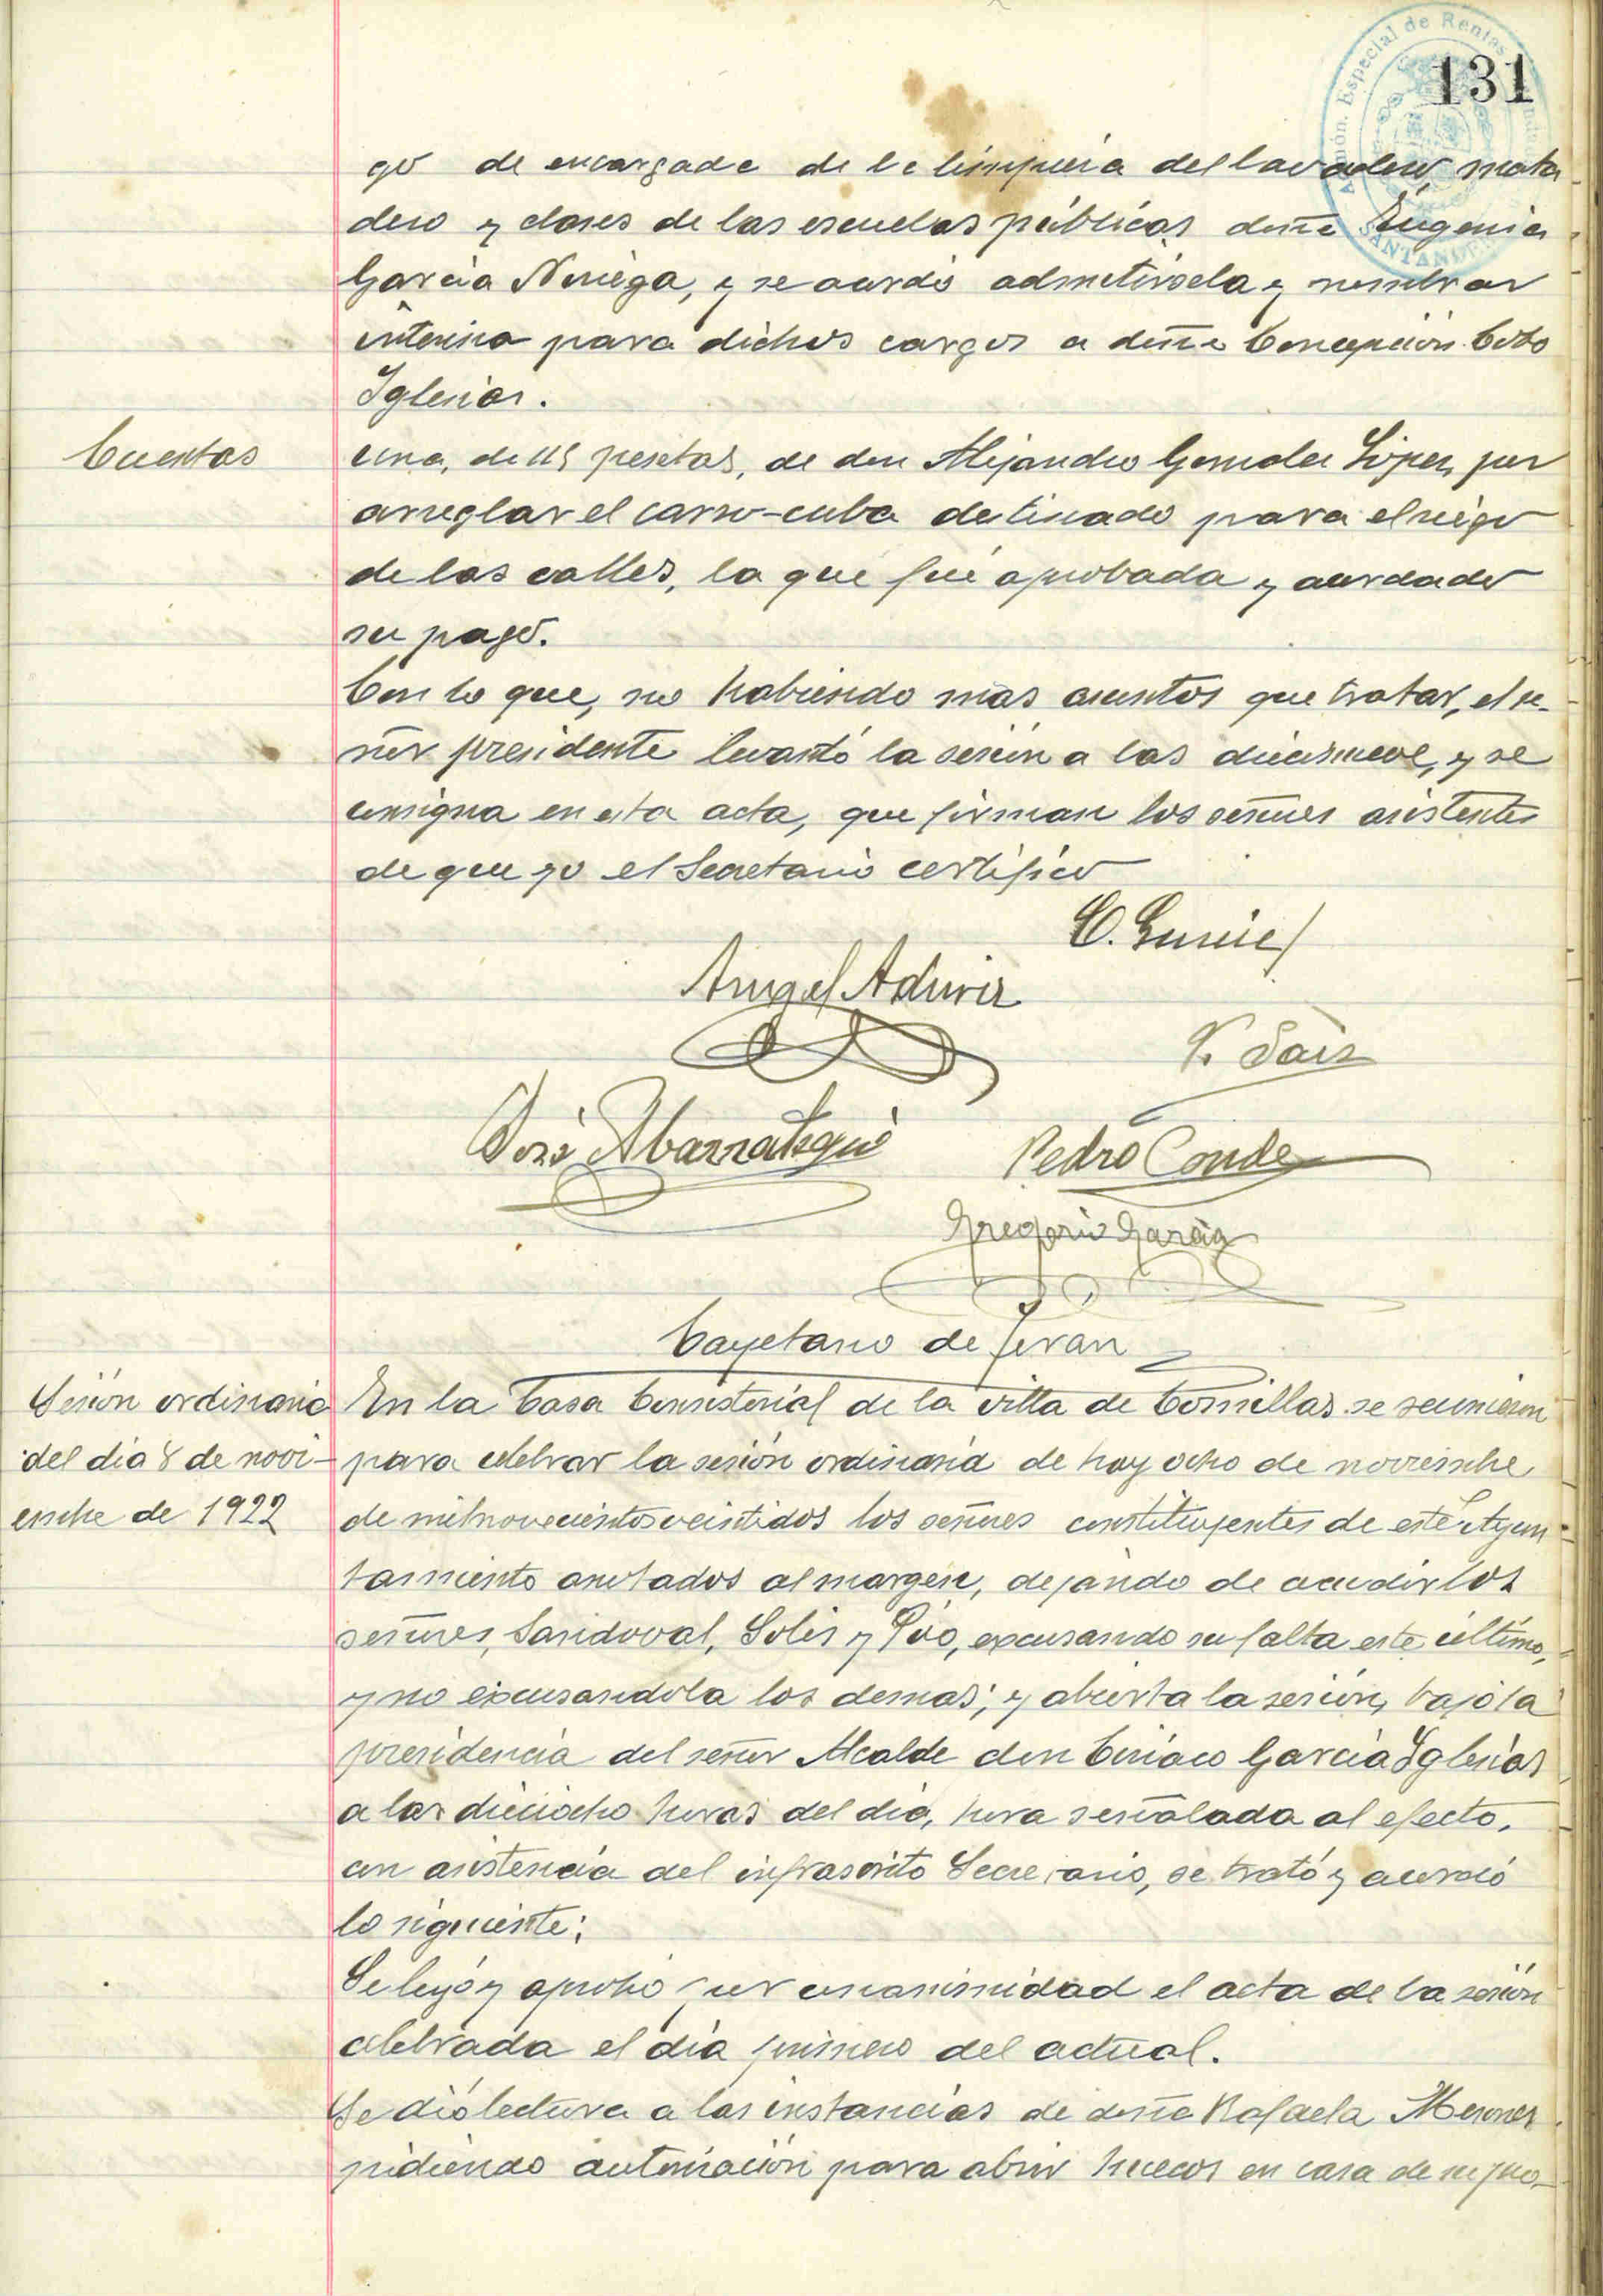 131
Admón. Especial de Rentas
SANTANDER
go de encargada de la limpieza del lavadero, mata
dero y clases de las escuelas públicas doña Eugenia
García Noriega, y se acordó admitírsela y nombrar
interina para dichos cargos a doña Concepción Coto
Iglesias.
Cuentas
una, de 115 pesetas, de don Alejandro González López, por
arreglar el carro-cuba destinado para el riego
de las calles, la que fué aprobada y acordado
su pago.
Con lo que, no habiendo mas asuntos que tratar, el se-
ñor presidente levantó la sesión a las diecinueve, y se
consigna en esta acta, que firman los señores asistentes
de que yo el Secretario certifico
C. García
Angel
V. Sáiz
José Abarrategui
Pedro Conde
Gregorio García
Cayetano de Terán
Sesión ordinaria
del día 8 de novi-
embre de 1922
En la Casa Consistorial de la villa de Comillas se reunieron
para celebrar la sesión ordinaria de hoy ocho de noviembre
de mil novecientos veintidos los señores constituyentes de este Ayun-
tamiento anotados al margen, dejando de acudir los
señores, Sandoval, Solís y Pío, excusando su falta este último,
y no excusandola los demas; y abierta la sesión, bajo la
presidencia del señor Alcalde don Ciriaco García Iglesias
a las dieciocho horas del día, hora señalada al efecto,
con asistencia del infrascrito Secretario, se trató y acordó
lo siguiente:
Se leyó y aprobó por unanimidad el acta de la sesión
celebrada el día primero del actual.
Se dió lectura a las instancias de doña Rafaela Mesones
pidiendo autorización para abrir huecos en casa de su pro-